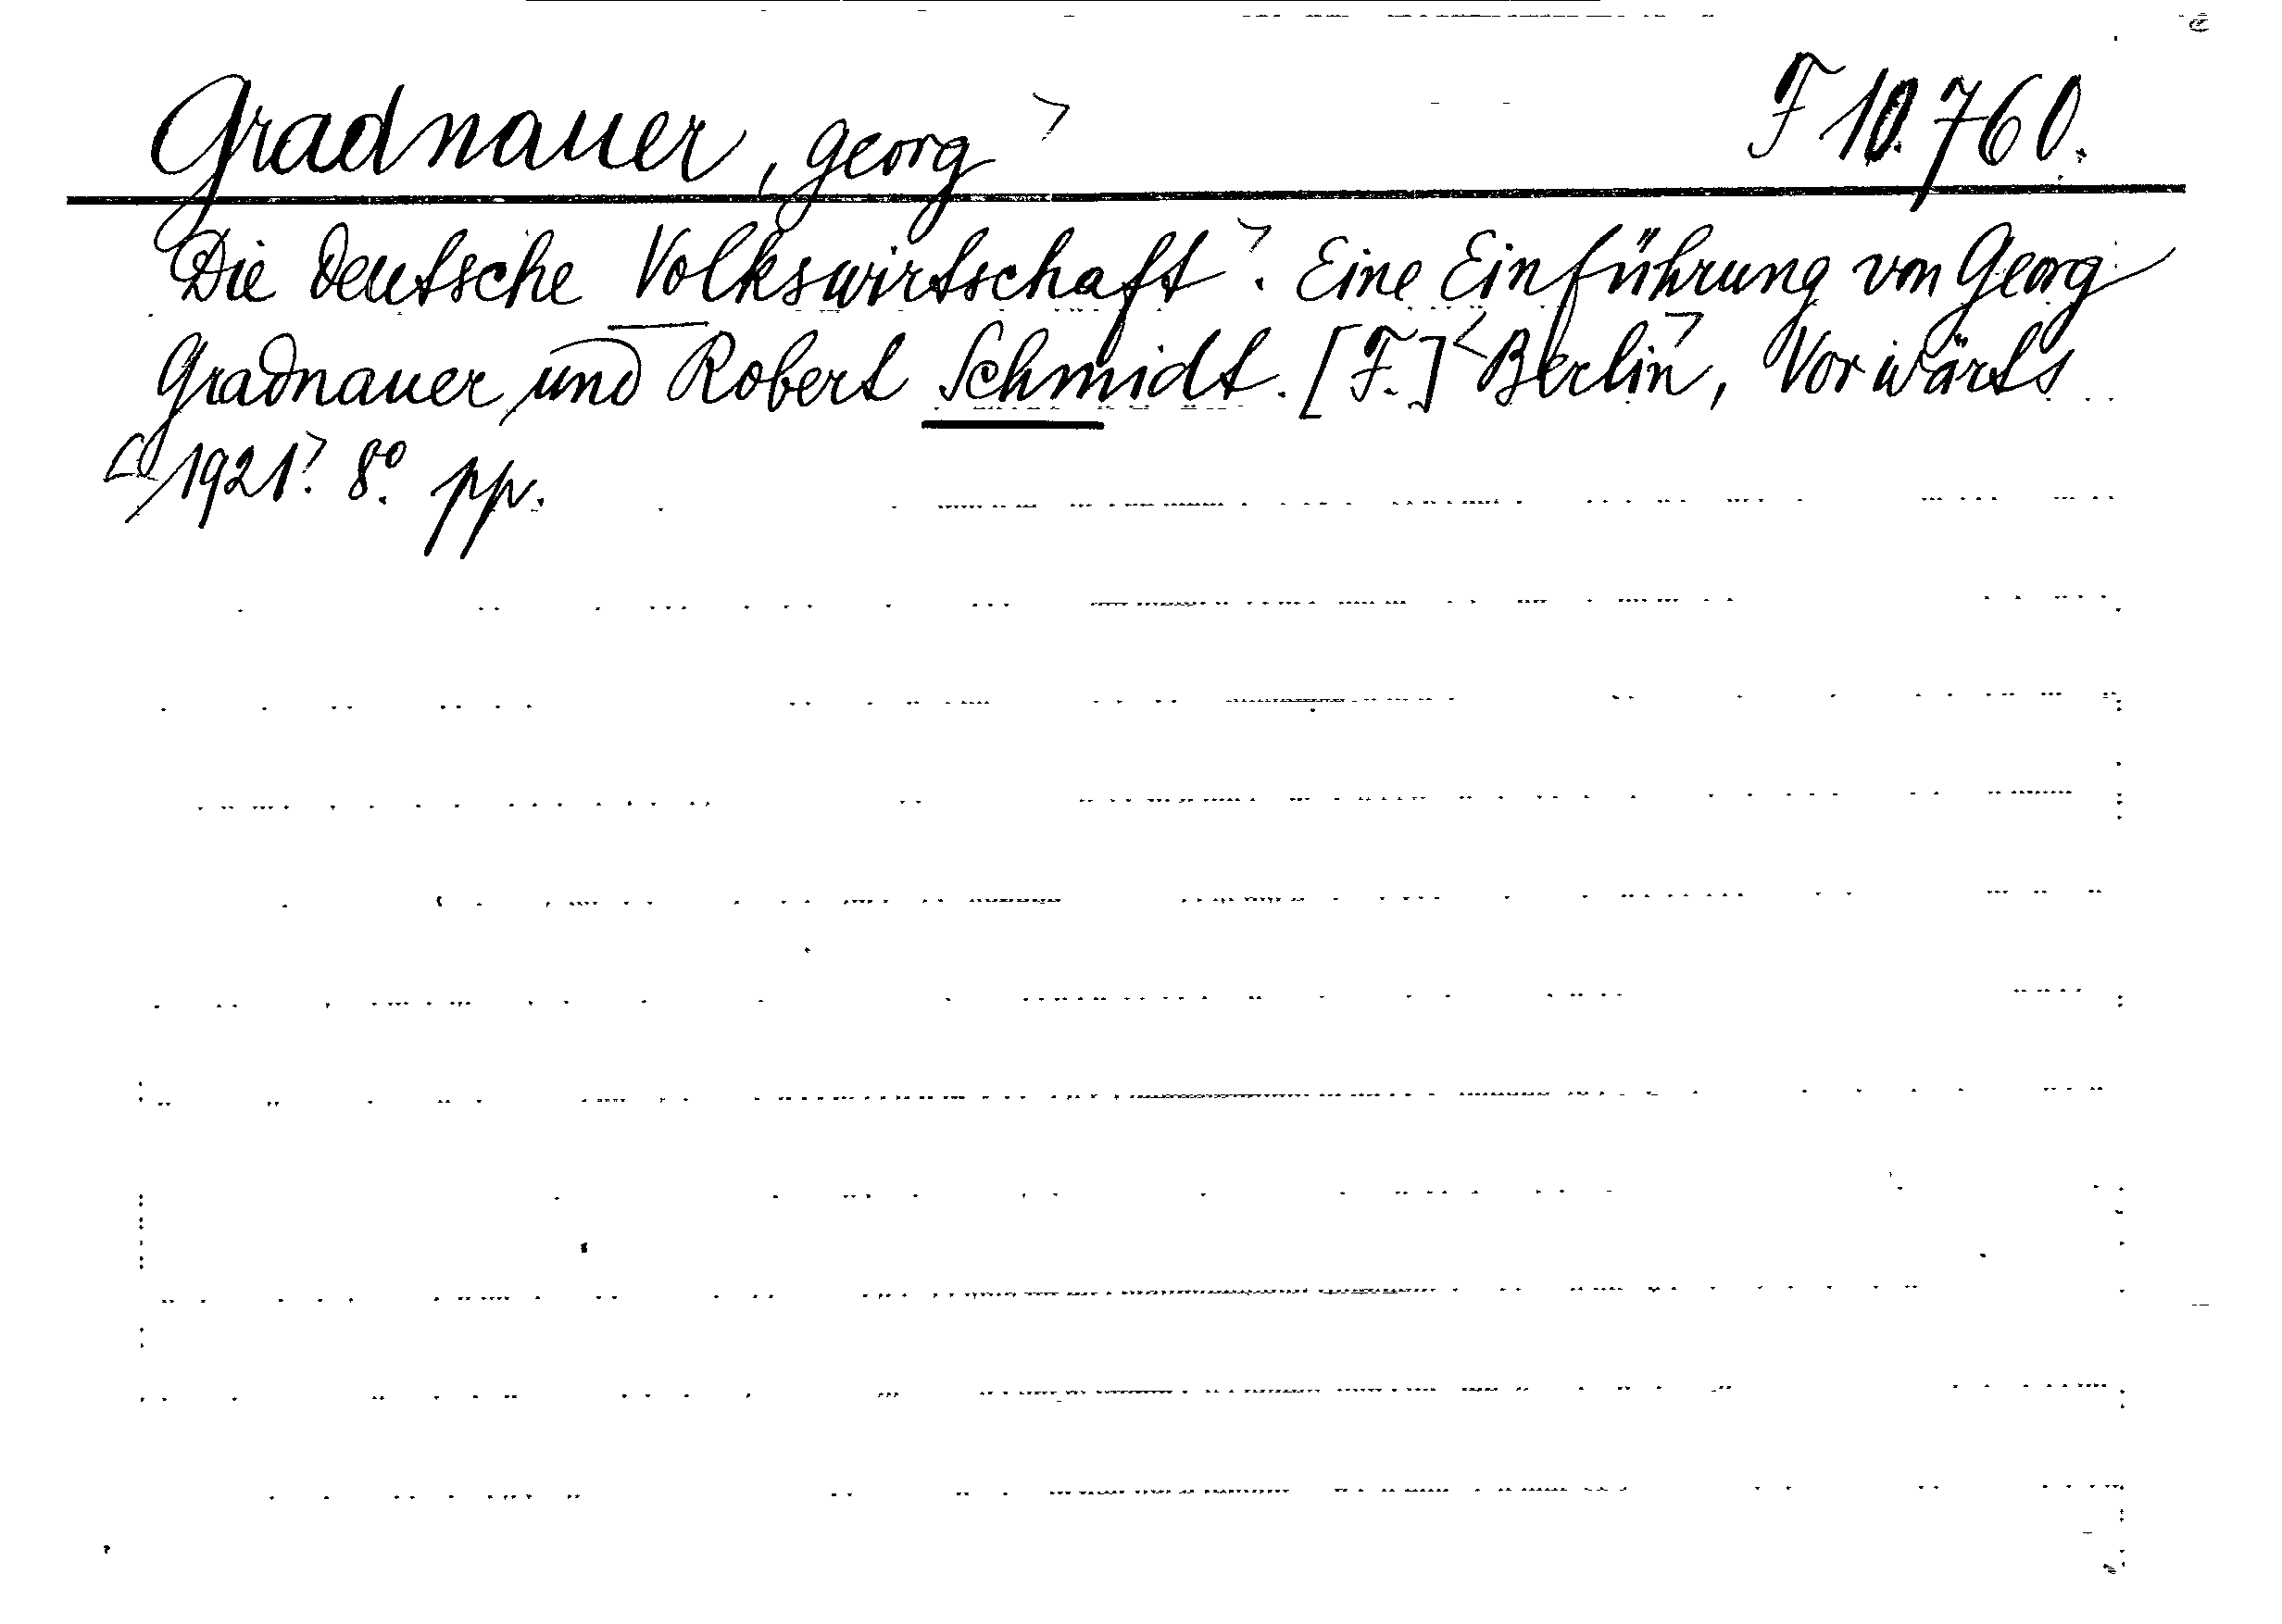 Gradnauer, Georg F 10.760.
Die deutsche Volkswirtschaft. Eine Einführung von Georg
Gradnauer und Robert Schmidt. [F.] Berlin, Vorwärts
1921. 8° pp.